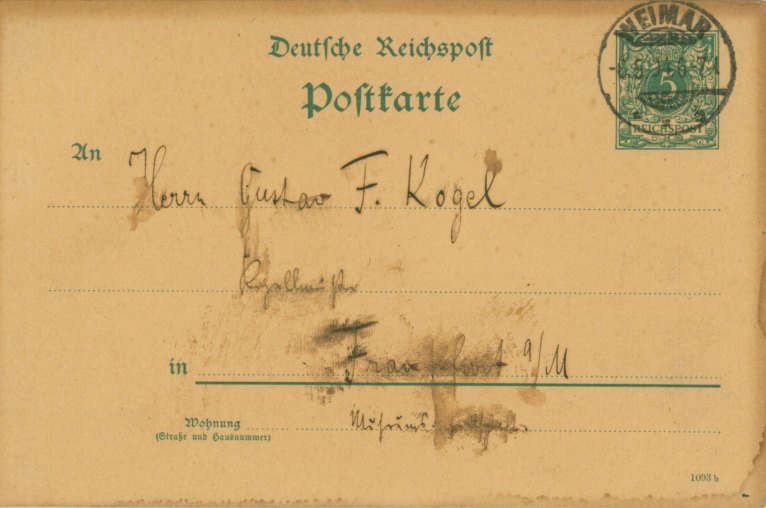 Deutsche Reichspost
Postkarte
WEIMAR
5
REICHSPOST
An Herrn Gustav F. Kogel
Kapellmeister
in Frankfurt a/M
Wohnung
(Straße und Hausnummer)
1093 h